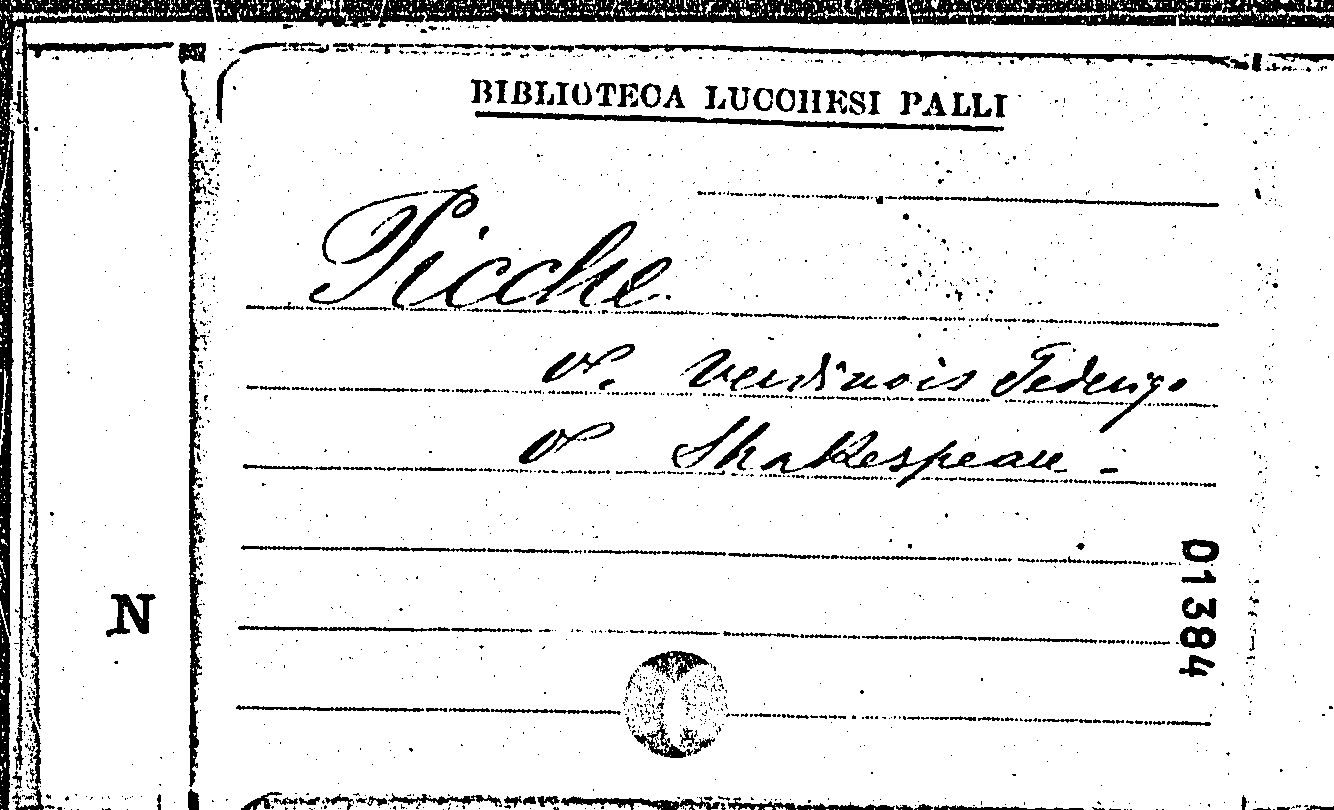 BIBLIOTECA LUCCHESI PALLI
Picche
v. Verdinois Federigo
v Shakespeare -
01384
N